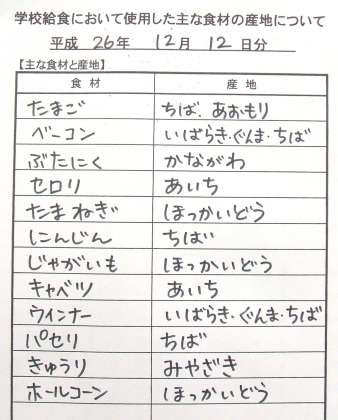 学校給食において使用した主な食材の産地について
平成 26年 12月 12日分
【主な食材と産地】
食材 産地
たまご ちば.あおもり
ベーコン いばらき・ぐんま・ちば
ぶたにく かながわ
セロリ あいち
たまねぎ ほっかいどう
にんじん ちば
じゃがいも ほっかいどう
キャベツ あいち
ウインナー いばらき・ぐんま・ちば
パセリ ちば
きゅうり みやざき
ホールコーン ほっかいどう